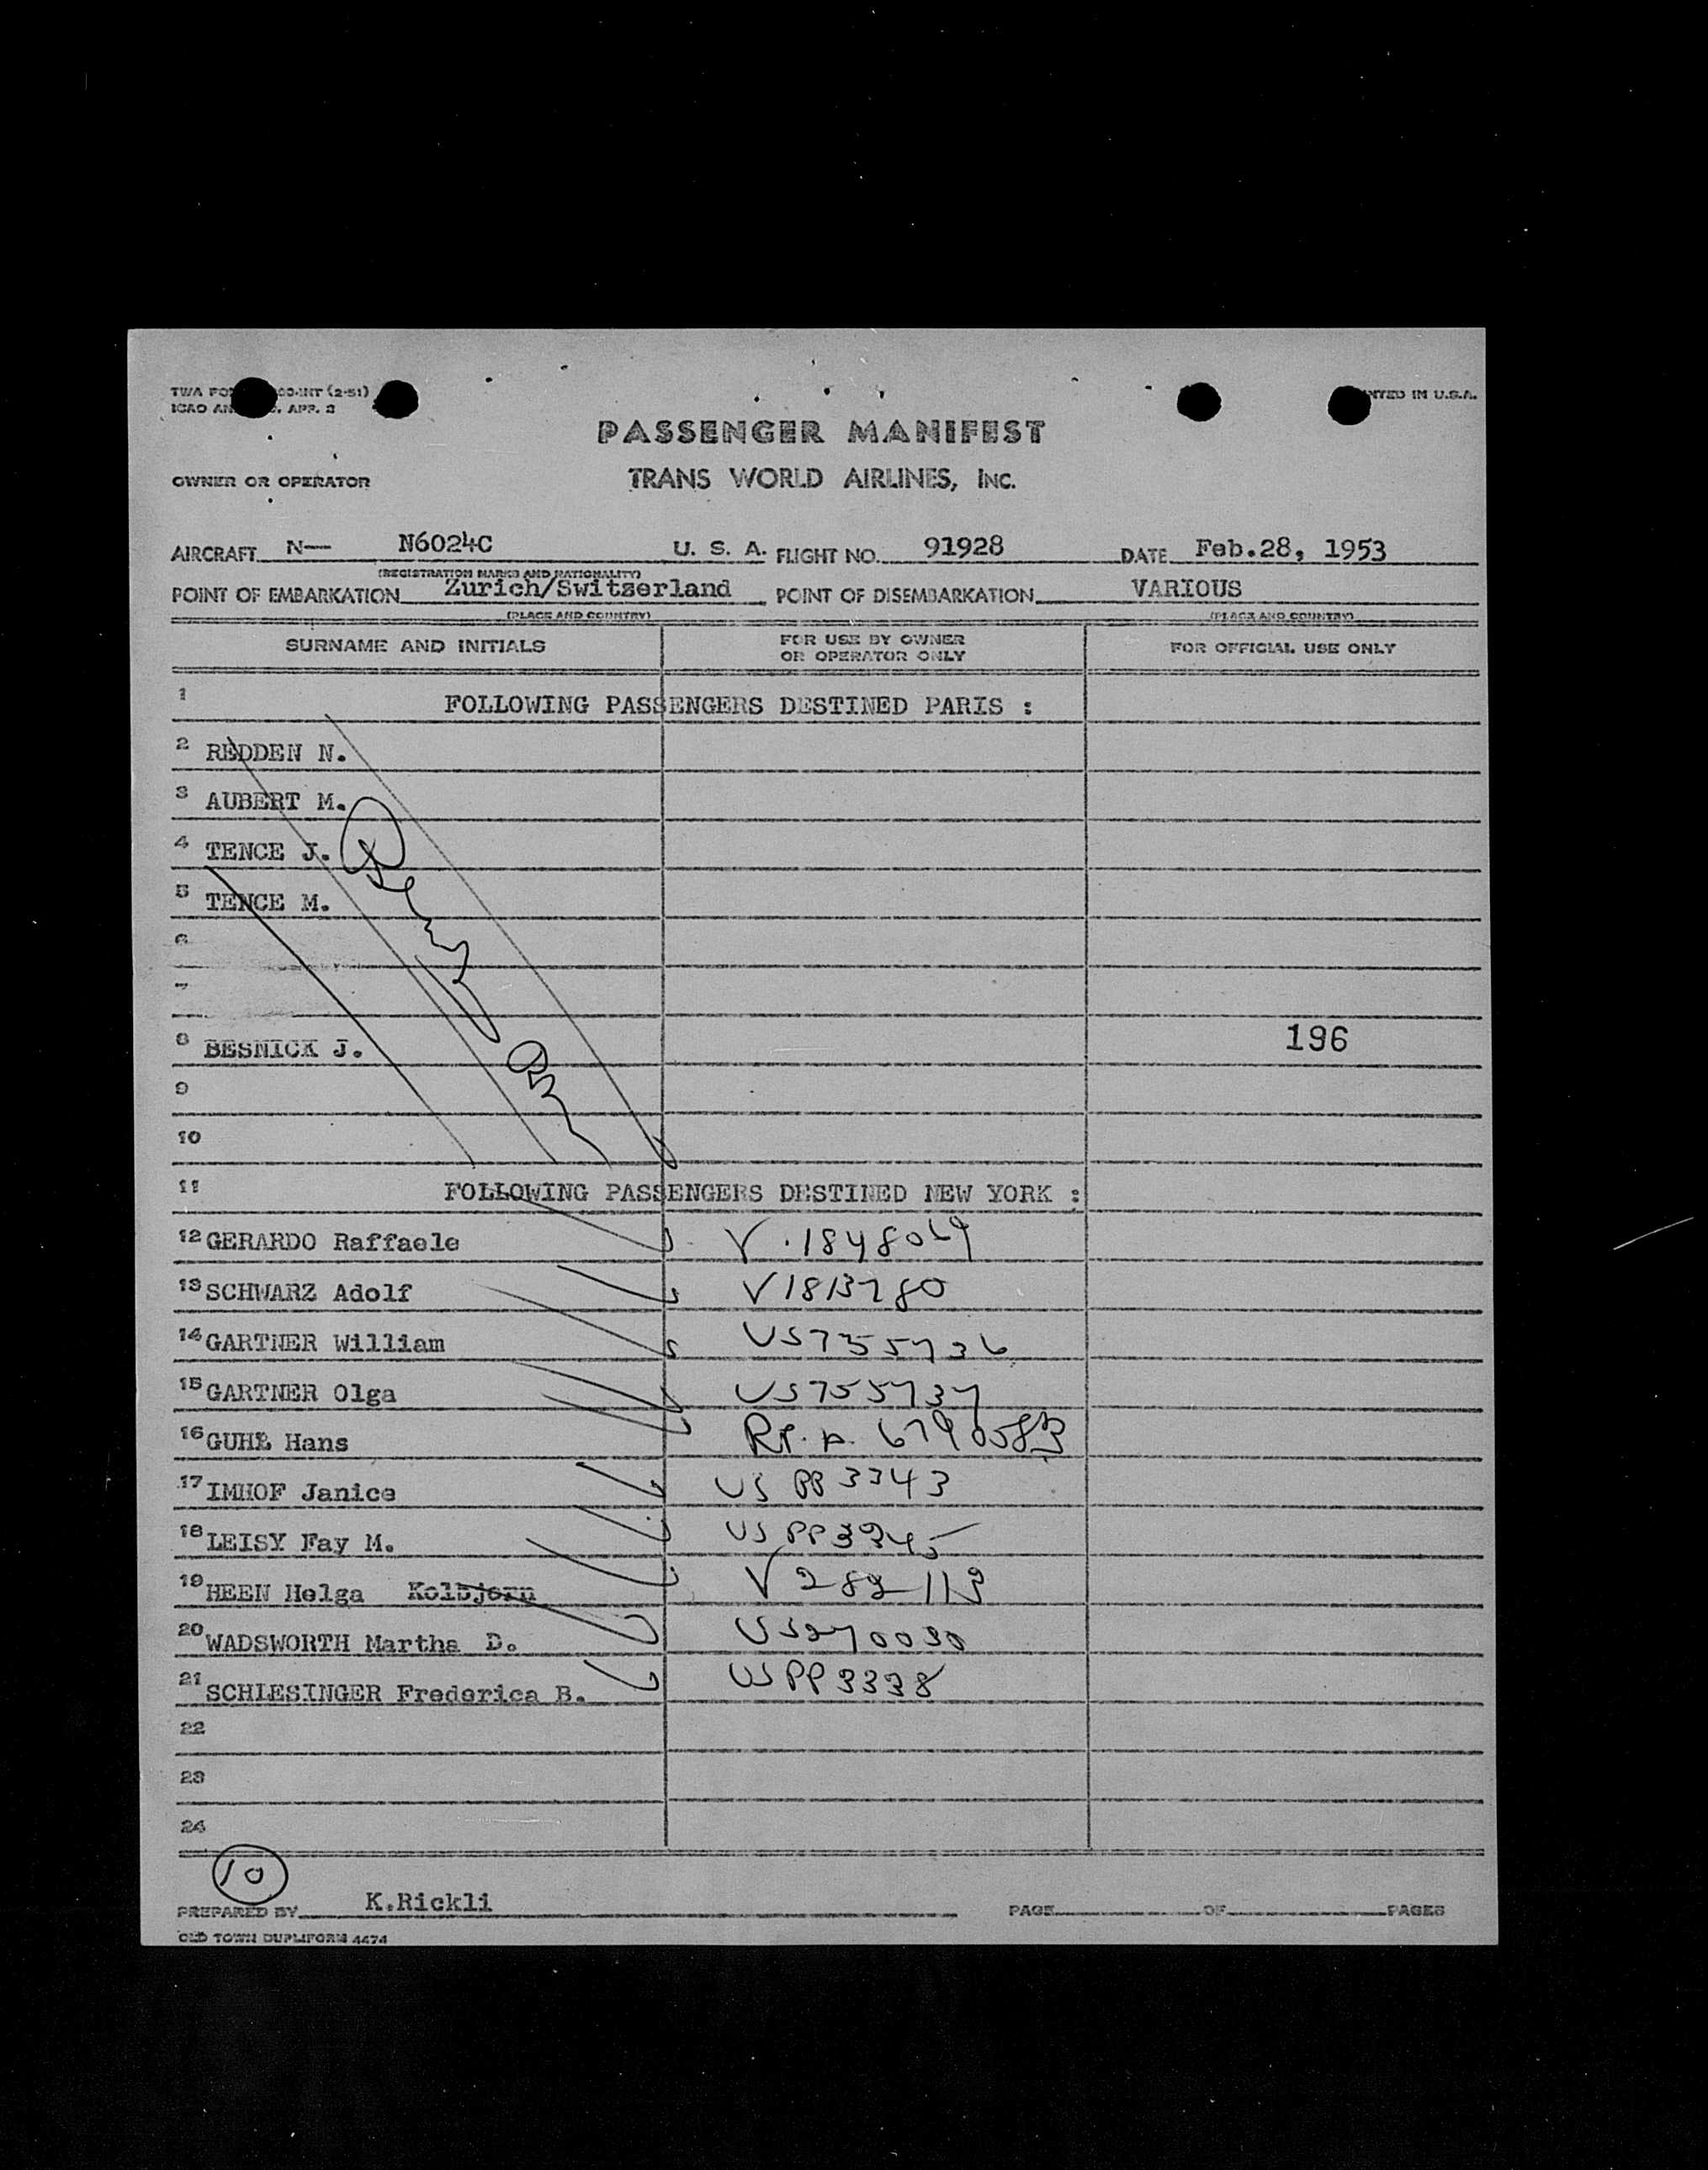 PASSENGER MANIFEST
OWNER OR OPERATOR TRANS WORLD AIRLINES, INC.
AIRCRAFT N— N6024C U. S. A. FLIGHT NO. 91928 DATE Feb.28, 1953
(REGISTRATION MARKS AND NATIONALITY)
POINT OF EMBARKATION Zurich/Switzerland POINT OF DISEMBARKATION VARIOUS
(PLACE AND COUNTRY) (PLACE AND COUNTRY)
SURNAME AND INITIALS FOR USE BY OWNER OR OPERATOR ONLY FOR OFFICIAL USE ONLY
1 FOLLOWING PASSENGERS DESTINED PARIS :
2 REDDEN N.
3 AUBERT M.
4 TENCE J.
5 TENCE M.
6
7
8 BESNICK J. 196
9
10
11 FOLLOWING PASSENGERS DESTINED NEW YORK :
12 GERARDO Raffaele V.1848069
13 SCHWARZ Adolf V1813780
14 GARTNER William US755736
15 GARTNER Olga US755737
16 GUHL Hans
17 IMHOF Janice US PP 3343
18 LEISY Fay M. US PP3345
19 HEEN Helga Kolbjorn V 282113
20 WADSWORTH Martha D. US270030
21 SCHLESINGER Frederica B. US PP3338
22
23
24
10
PREPARED BY K.Rickli PAGE OF PAGES
OLD TOWN DUPLIFORM 4474